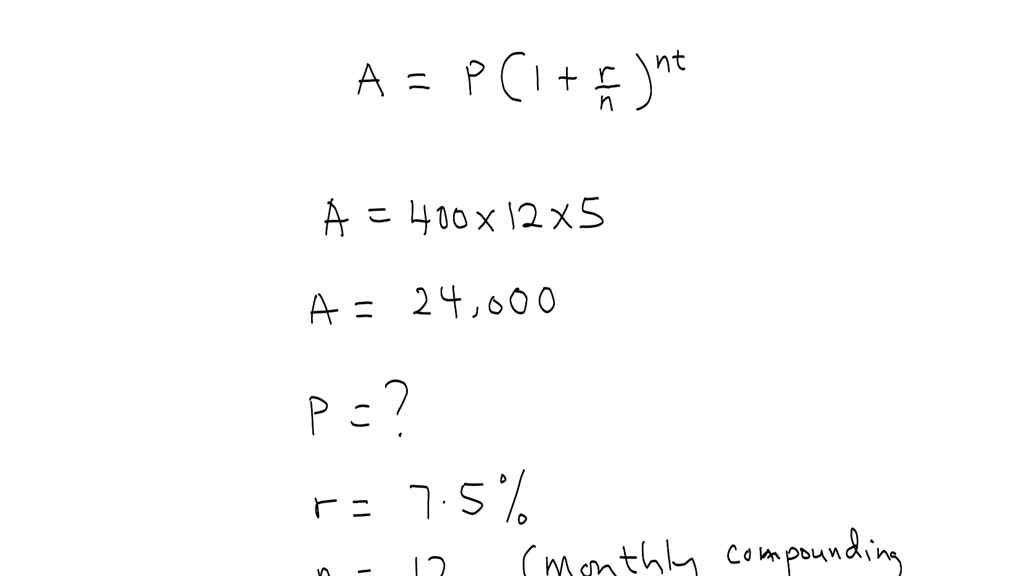 A = P(1 + r/n)^nt
A = 400x12x5
A = 24,000
P = ?
r = 7.5%
n = 12 (monthly compounding